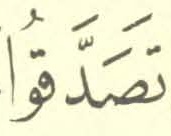 تَصَدَّقُوا